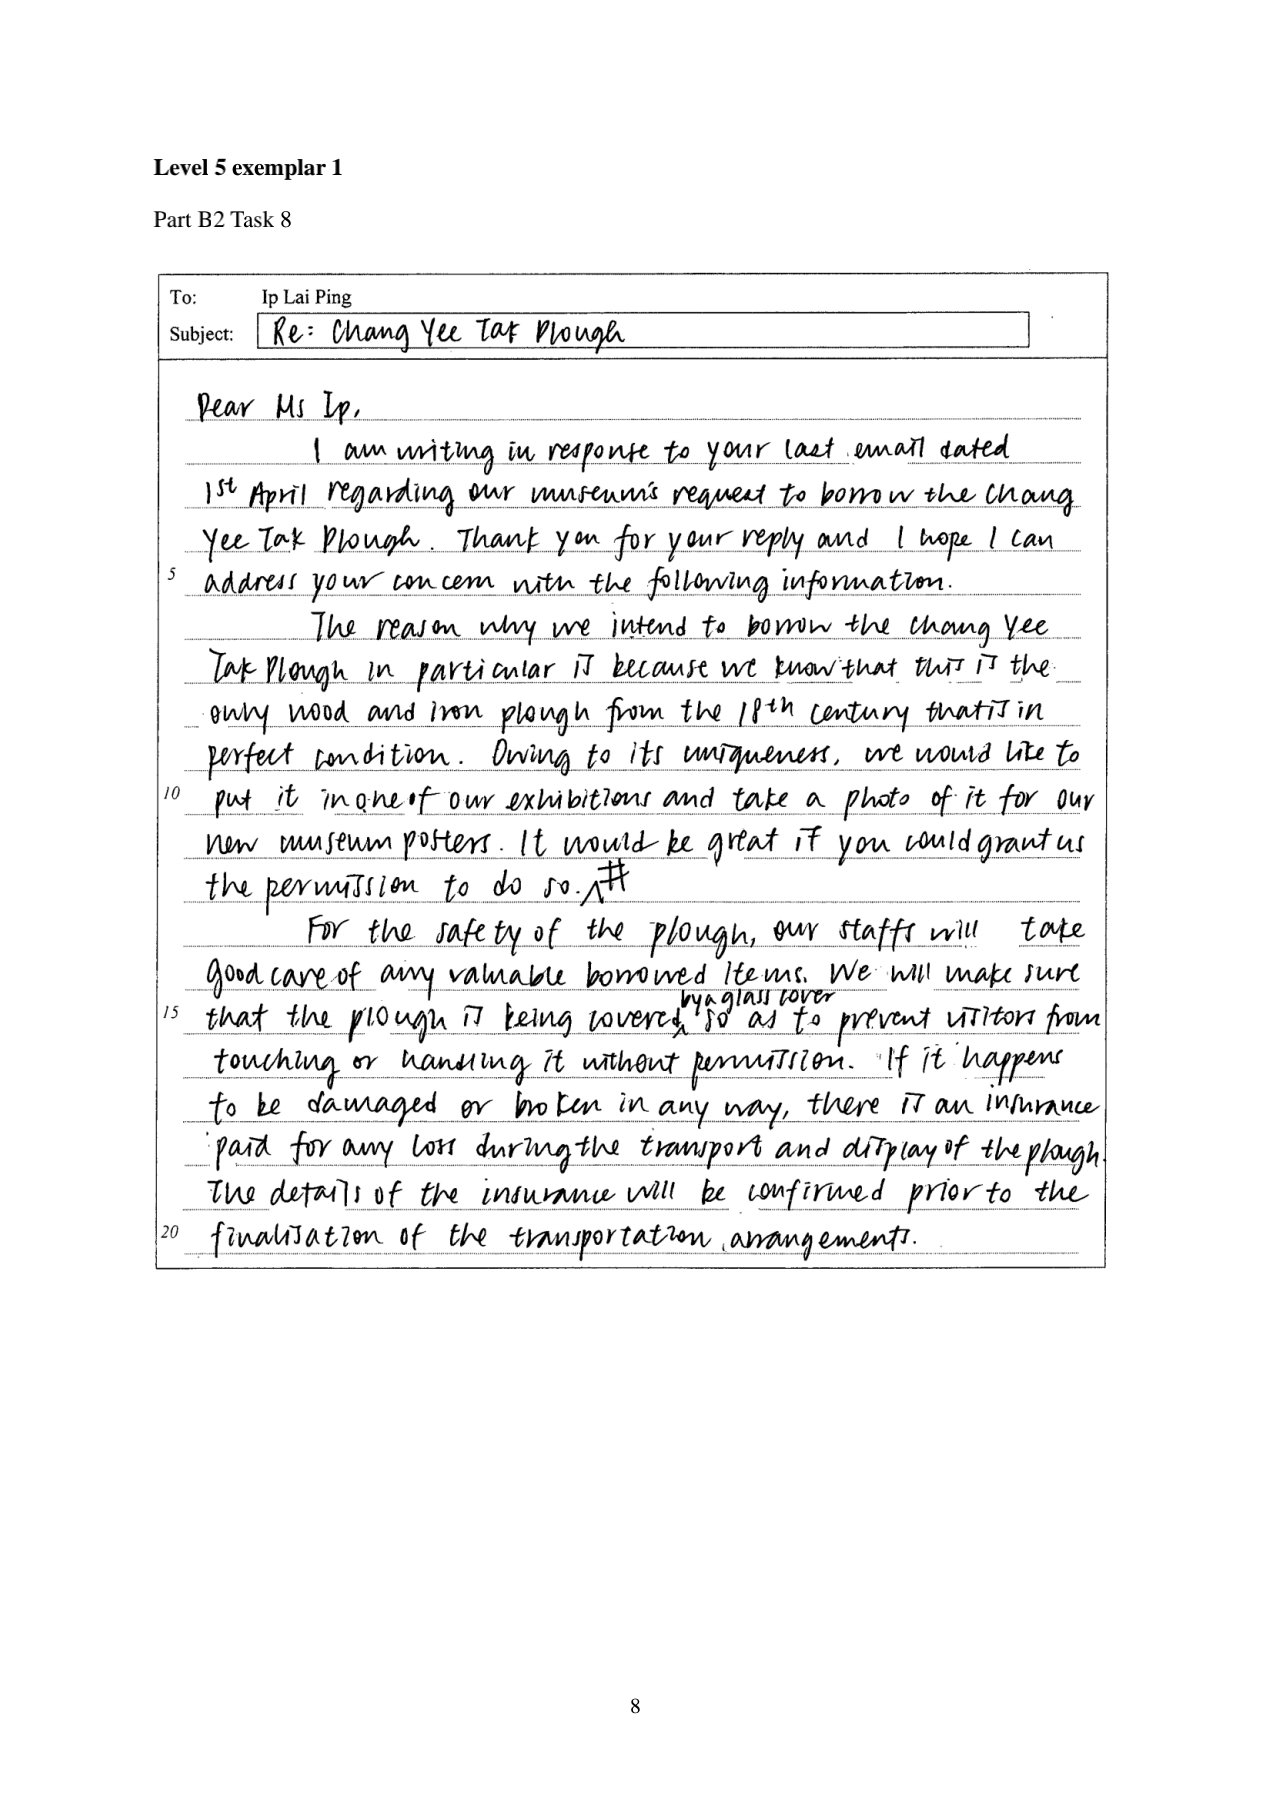 Level 5 exemplar 1
Part B2 Task 8
To: Ip Lai Ping
Subject: Re: Chang Yee Tak Plough
Dear Ms Ip,
I am writing in response to your last email dated
1st April regarding our museum's request to borrow the Chang
Yee Tak Plough. Thank you for your reply and I hope I can
5 address your concern with the following information.
The reason why we intend to borrow the Chang Yee
Tak Plough in particular is because we know that this is the
only wood and iron plough from the 18th century that is in
perfect condition. Owing to its uniqueness, we would like to
10 put it in one of our exhibitions and take a photo of it for our
new museum posters. It would be great if you could grant us
the permission to do so. ^#
For the safety of the plough, our staffs will take
good care of any valuable borrowed items. We will make sure
by a glass cover
15 that the plough is being covered ^ so as to prevent visitors from
touching or handling it without permission. If it happens
to be damaged or broken in any way, there is an insurance
paid for any loss during the transport and display of the plough.
The details of the insurance will be confirmed prior to the
20 finalisation of the transportation arrangements.
8